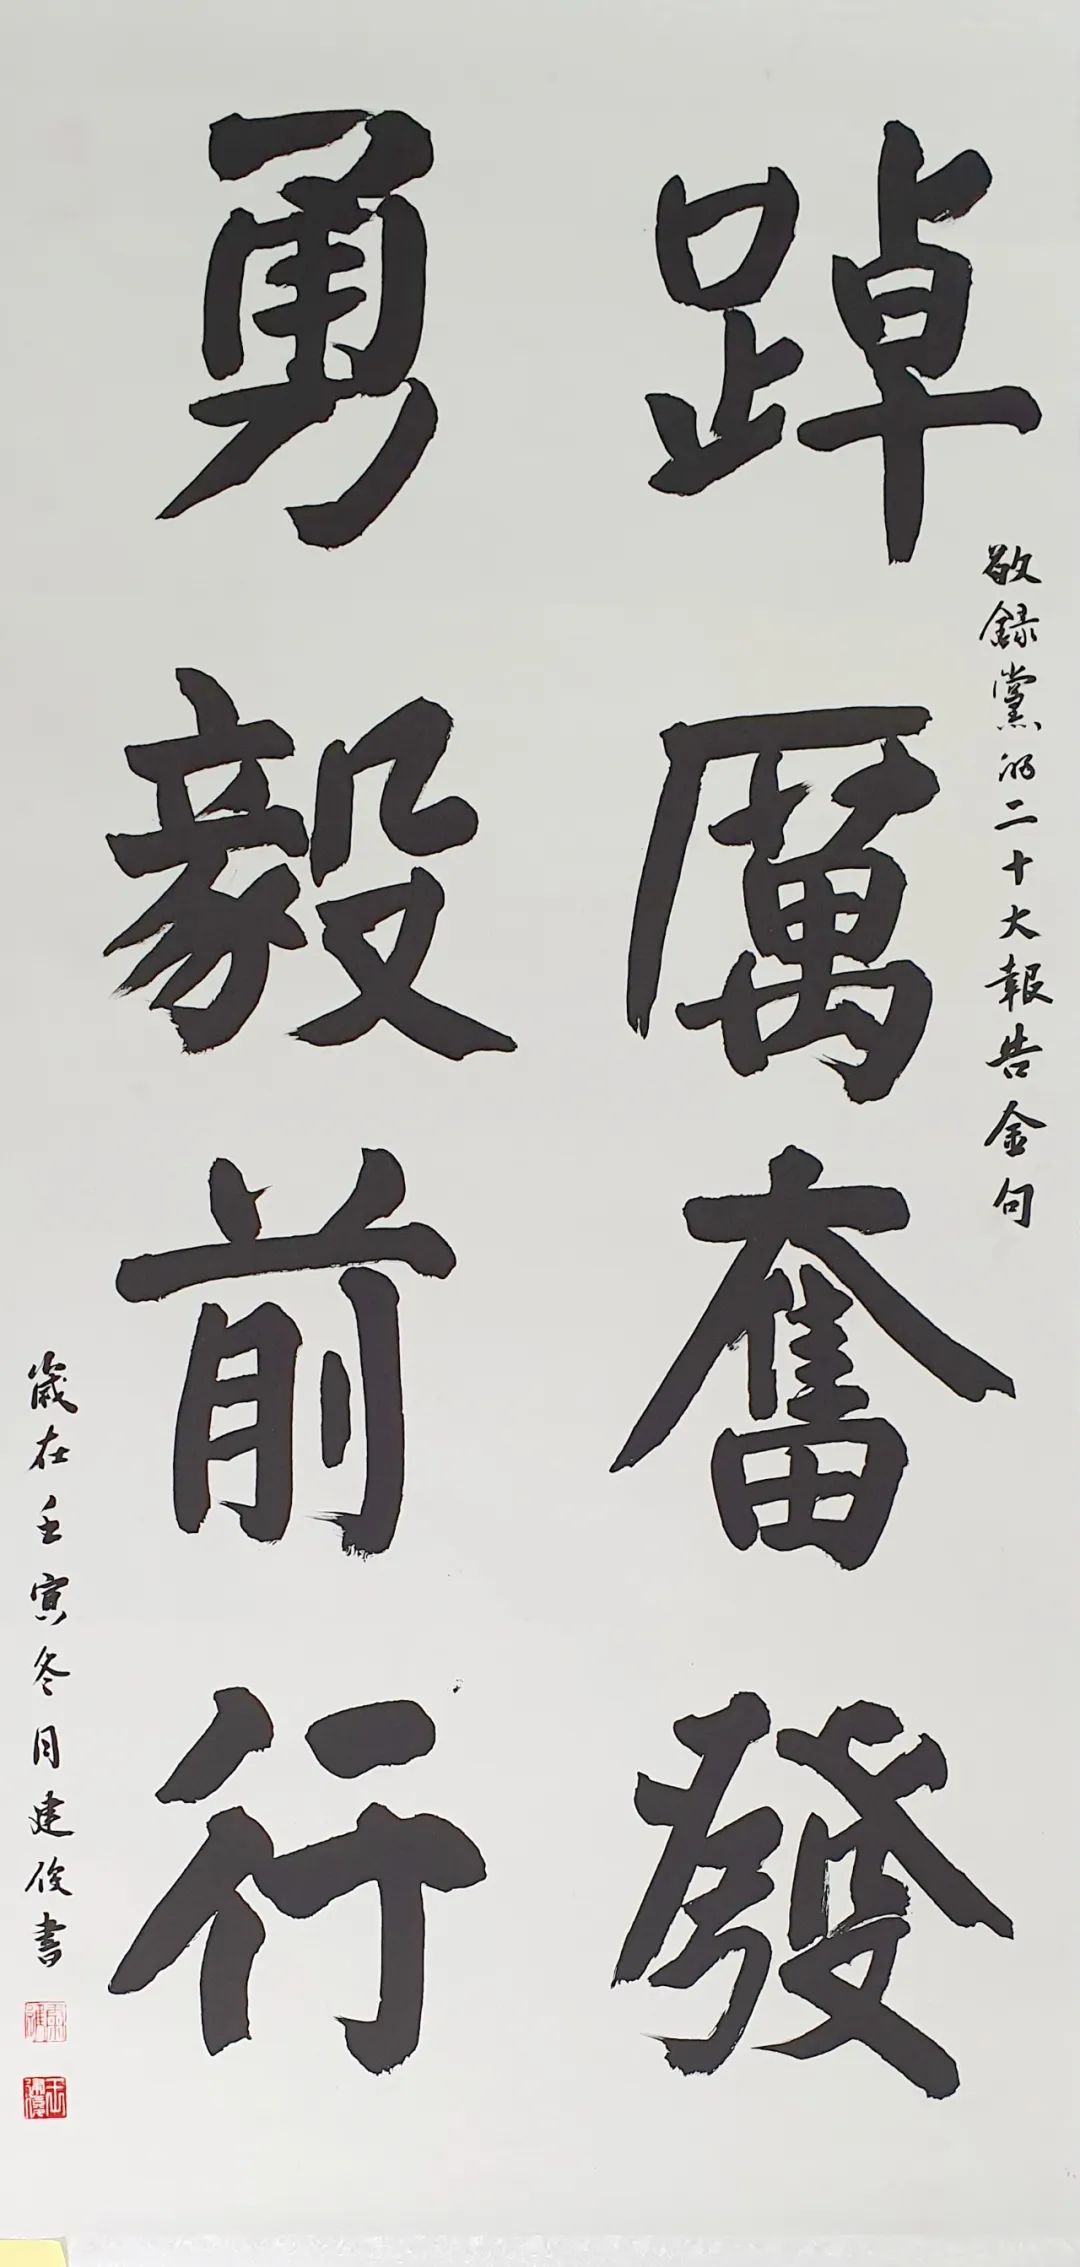 踔厲奮發
敬録黨的二十大報告金句
勇毅前行
歲在壬寅冬月建俊書